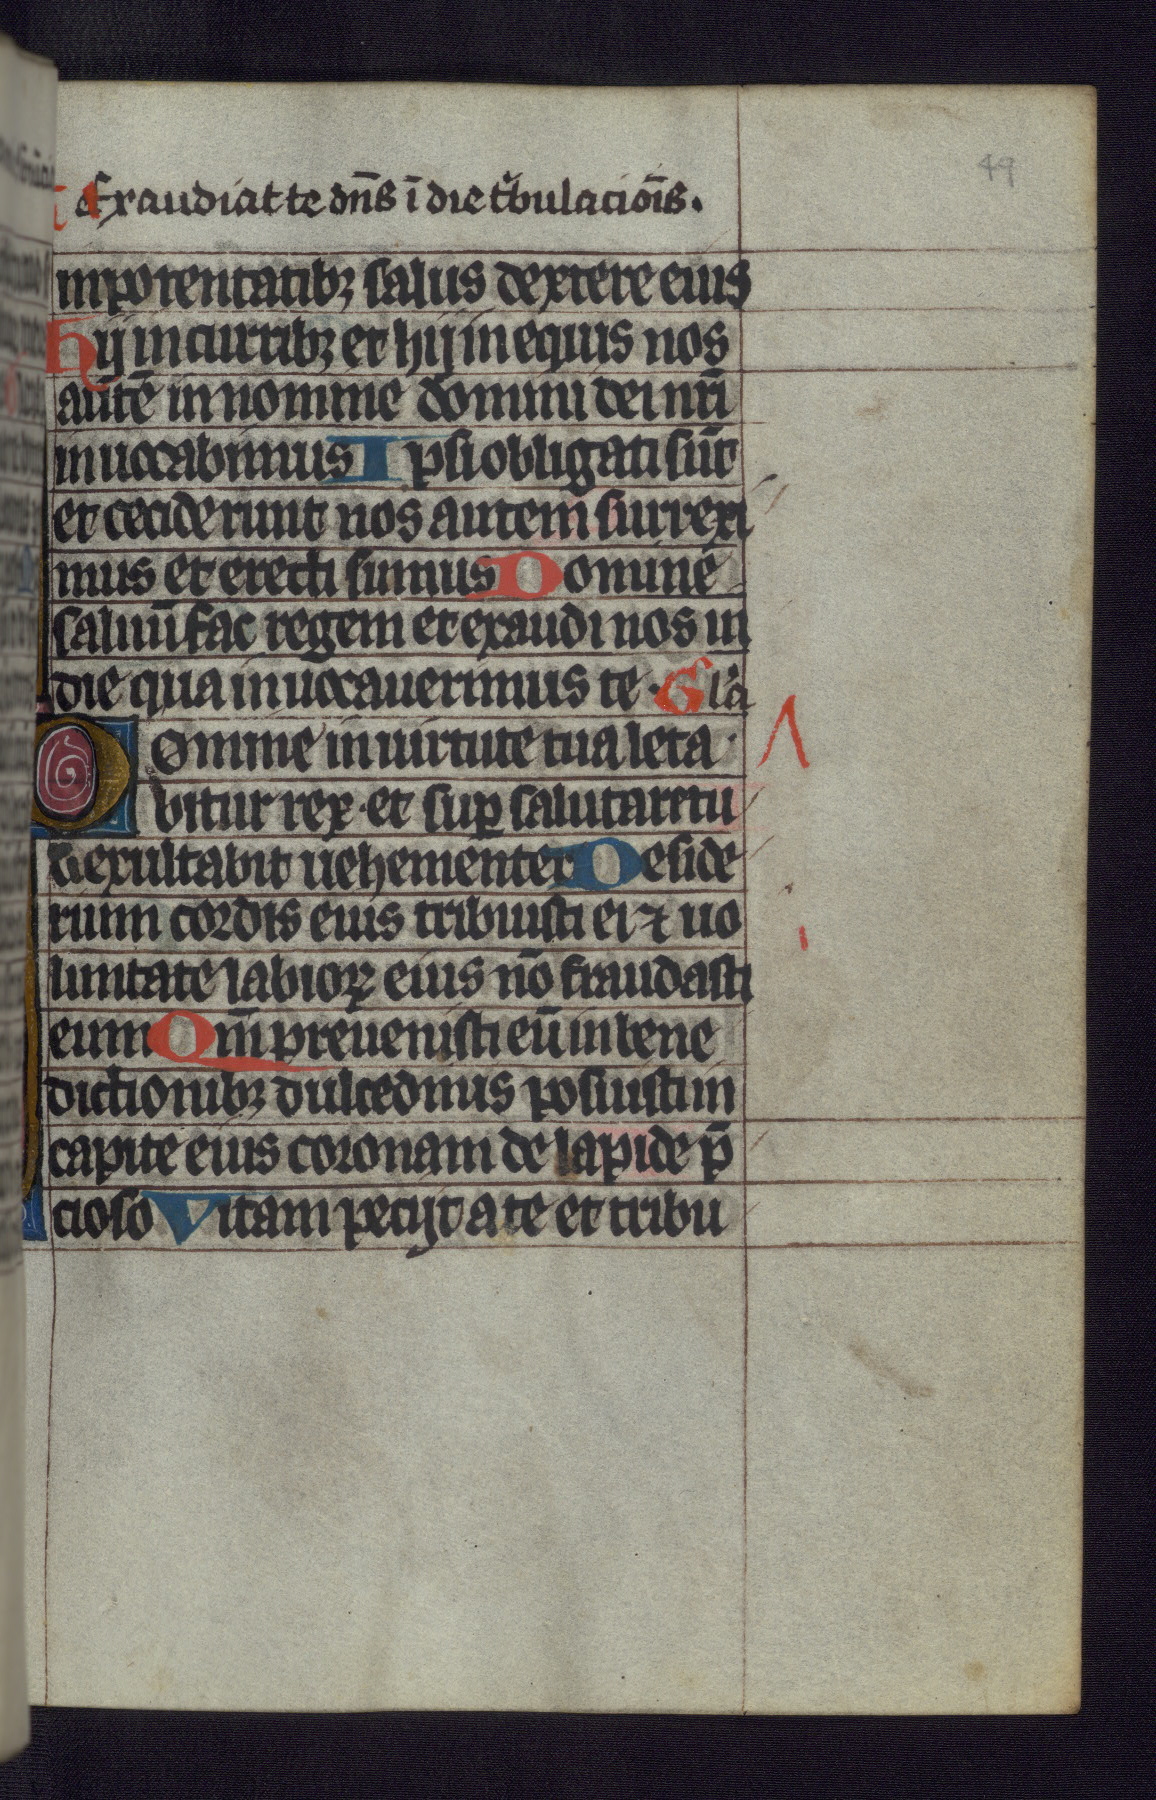 49
Exaudiat te dn̄s ī die t'bulaciōis.
in potentatibꝫ salus dextere eius
Hij in curribꝫ et hij in equis nos
autē in nomine domini dei nr̄i
inuocabimus Ipsi obligati sūt
et ceciderunt nos autem surrexi
mus et erecti sumus Domine
saluū fac regem et exaudi nos in
die qua inuocauerimus te. Gl'a
Domine in uirtute tua leta
bitur rex. et suꝑ salutare tu
um exultabit uehementer Deside
rium cordis eius tribuisti ei ⁊ uo
luntate labioꝝ eius nō fraudasti
eum Qm̄ preuenisti eū in bene
dictionibꝫ dulcedinis posuisti in
capite eius coronam de lapide p̄
cioso Vitam petijt a te et tribu